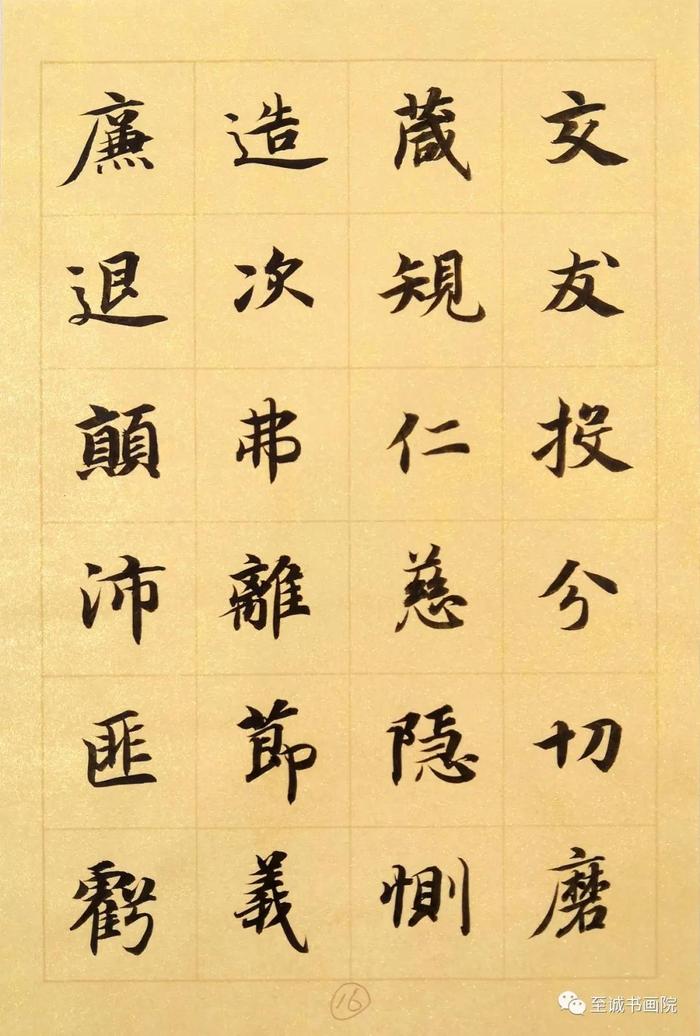 交友投分切磨
箴規仁慈隐恻
造次弗離節義
廉退顛沛匪虧
16
至诚书画院